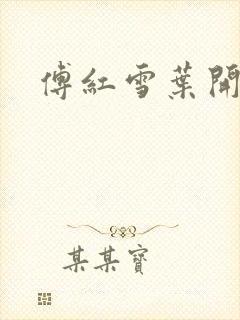 傅紅雪葉開
某某寶